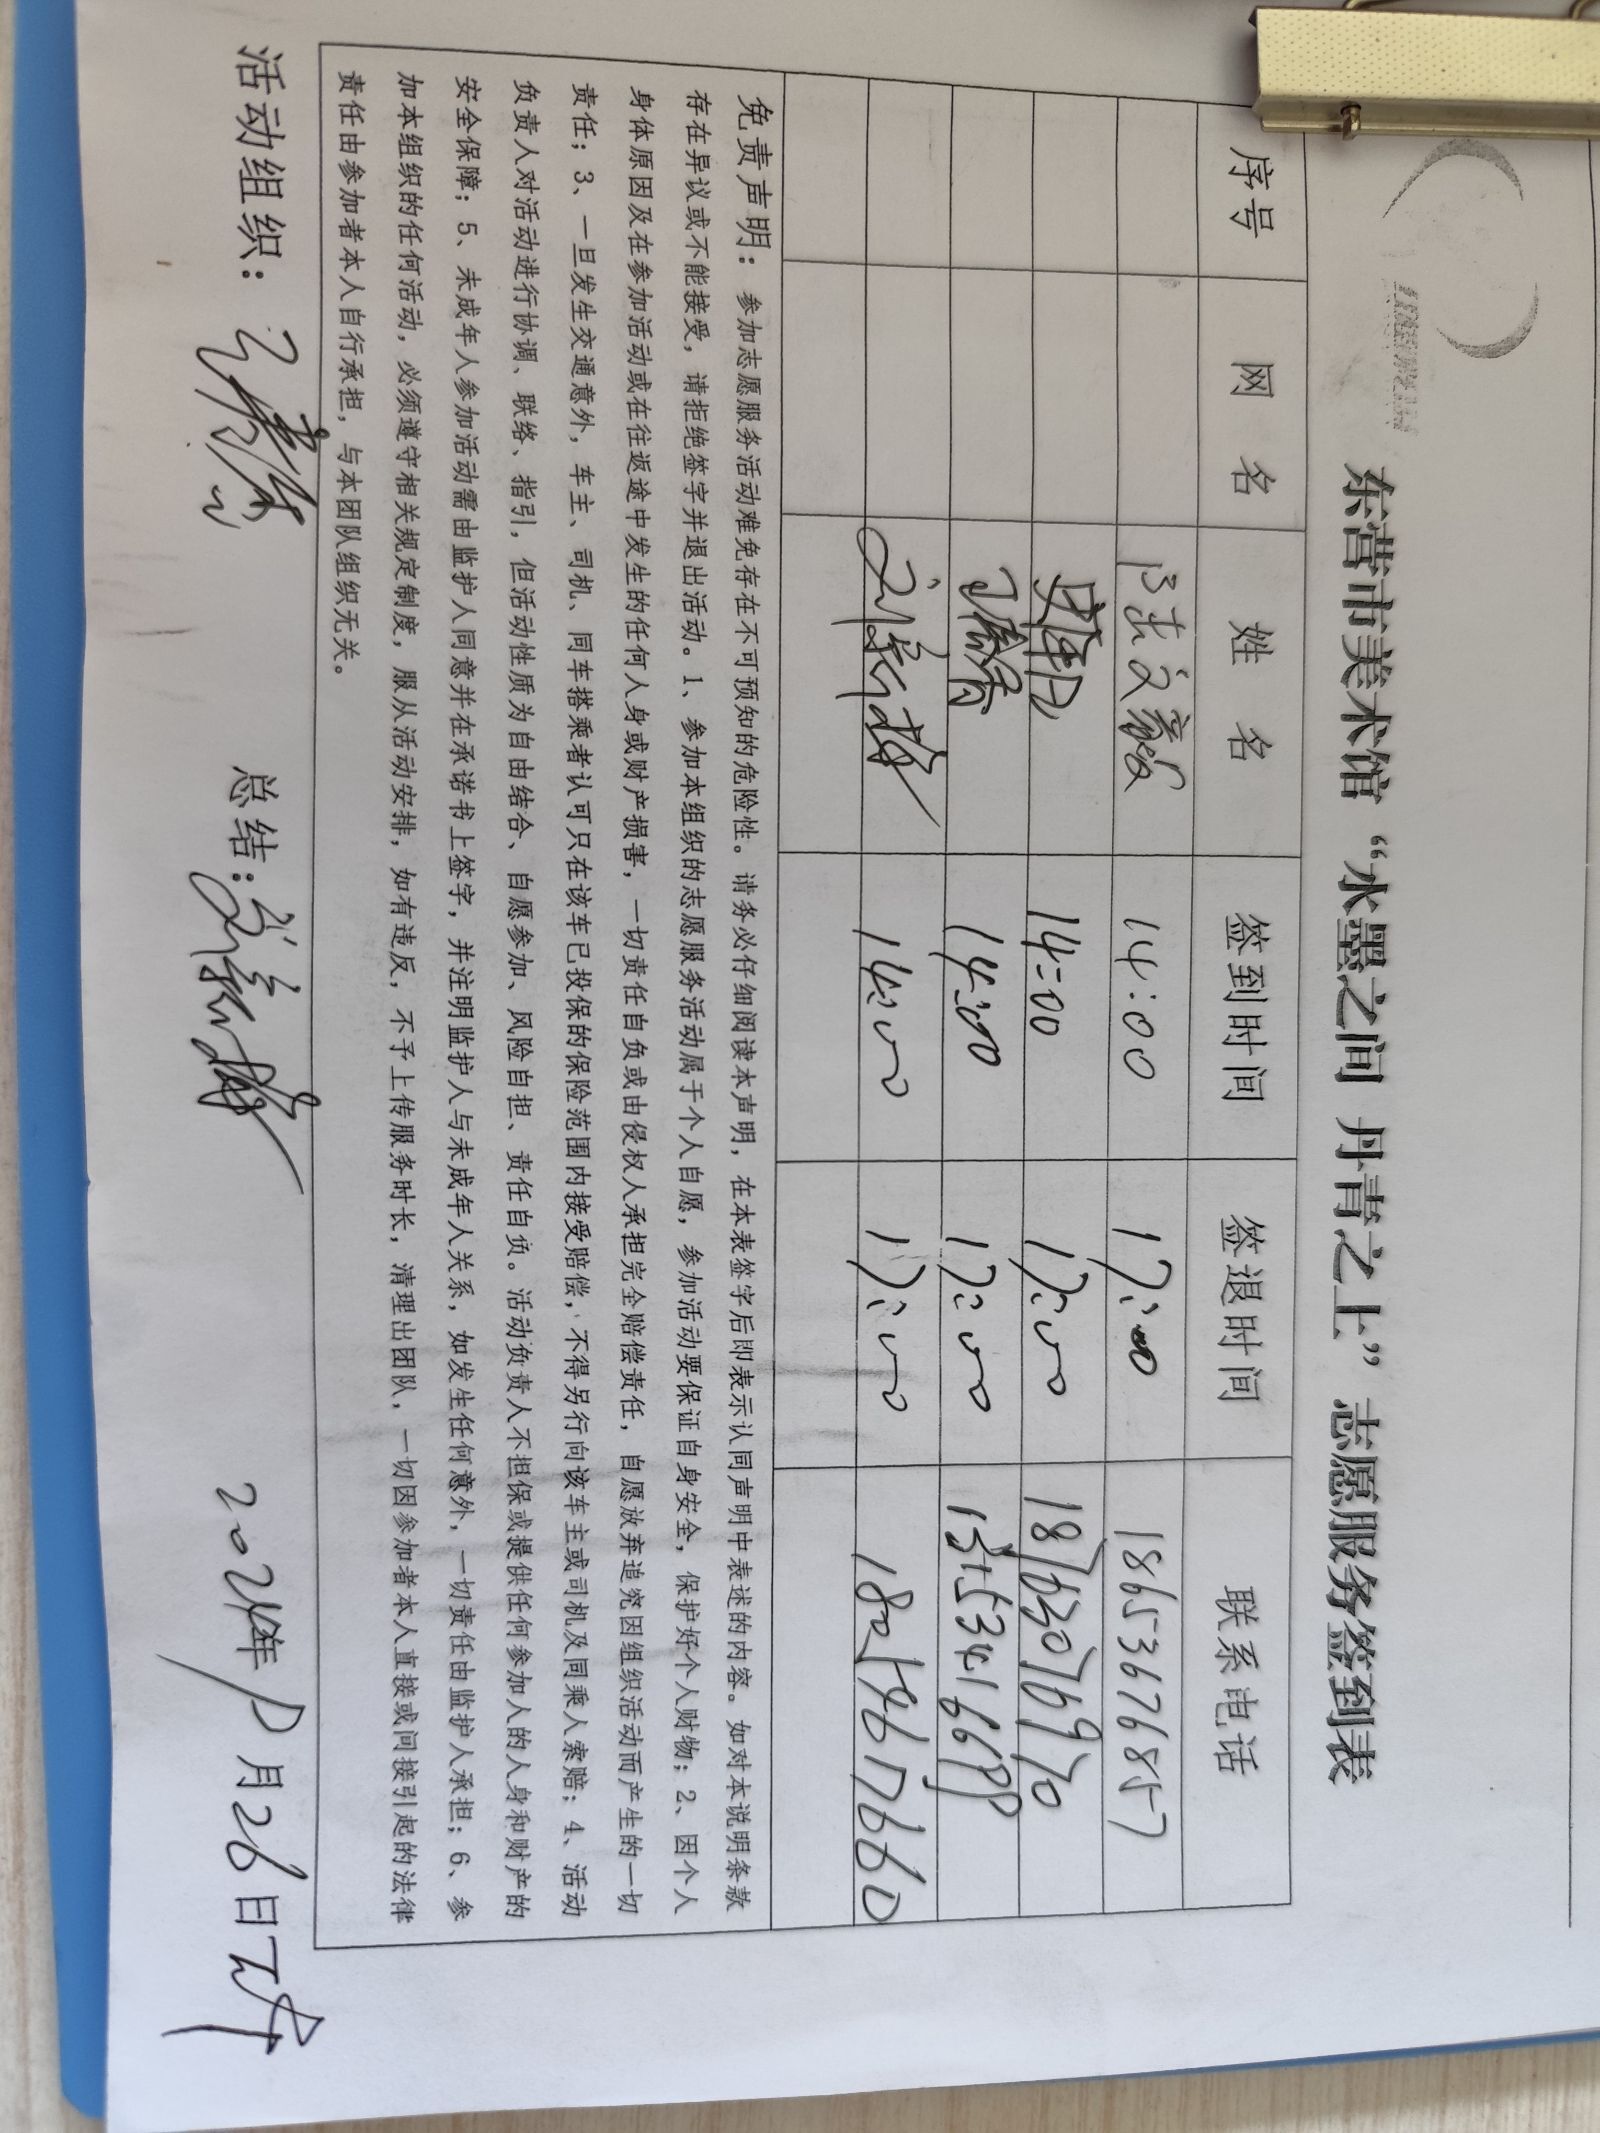 东营市美术馆“水墨之间 丹青之上”志愿服务签到表
序号 网 名 姓 名 签到时间 签退时间 联系电话
14:00 17:00 18653676857
14:00 17:00 18763076970
14:00 17:00
14:00 17:00
免责声明：参加志愿服务活动难免存在不可预知的危险性。请务必仔细阅读本声明，在本表签字后即表示认同声明中表述的内容。如对本说明条款
存在异议或不能接受，请拒绝签字并退出活动。1、参加本组织的志愿服务活动属于个人自愿，参加活动要保证自身安全，保护好个人财物；2、因个人
身体原因及在参加活动或在往返途中发生的任何人身或财产损害，一切责任自负或由侵权人承担完全赔偿责任，自愿放弃追究因组织活动而产生的一切
责任；3、一旦发生交通意外，车主、司机、同车搭乘者认可只在该车已投保的保险范围内接受赔偿，不得另行向该车主或司机及同乘人索赔；4、活动
负责人对活动进行协调、联络、指引，但活动性质为自由结合、自愿参加、风险自担、责任自负。活动负责人不担保或提供任何参加人的人身和财产的
安全保障；5、未成年人参加活动需由监护人同意并在承诺书上签字，并注明监护人与未成年人关系，如发生任何意外，一切责任由监护人承担；6、参
加本组织的任何活动，必须遵守相关规定制度，服从活动安排，如有违反，不予上传服务时长，清理出团队，一切因参加者本人直接或间接引起的法律
责任由参加者本人自行承担，与本团队组织无关。
活动组织： 总结： 2024年 月26日下午